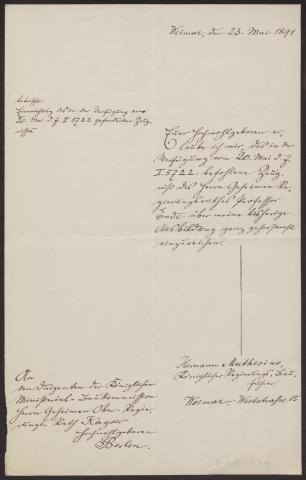 Weimar, den 23. Mai 1891
betrifft:
Einreichung des in der Verfügung vom
20. Mai d. J. I 5722 geforderten Zeug-
nisses.
Euer Hochwohlgeboren er-
laube ich mir, das in der
Verfügung vom 20. Mai d. J.
I 5722 befohlene Zeug-
niß des Herrn Geheimen Re-
gierungsrathes Professor
Ende über meine bisherige
Ausbildung ganz gehorsamst
einzureichen.
Hermann Muthesius,
Königlicher Regierungs-Bau-
führer
Weimar, Weststraße 15
An
den Dirigenten der Königlichen
Ministerial-Baukommission
Herrn Geheimen Ober-Regie-
rungs-Rath Kayser
Hochwohlgeboren
Berlin.